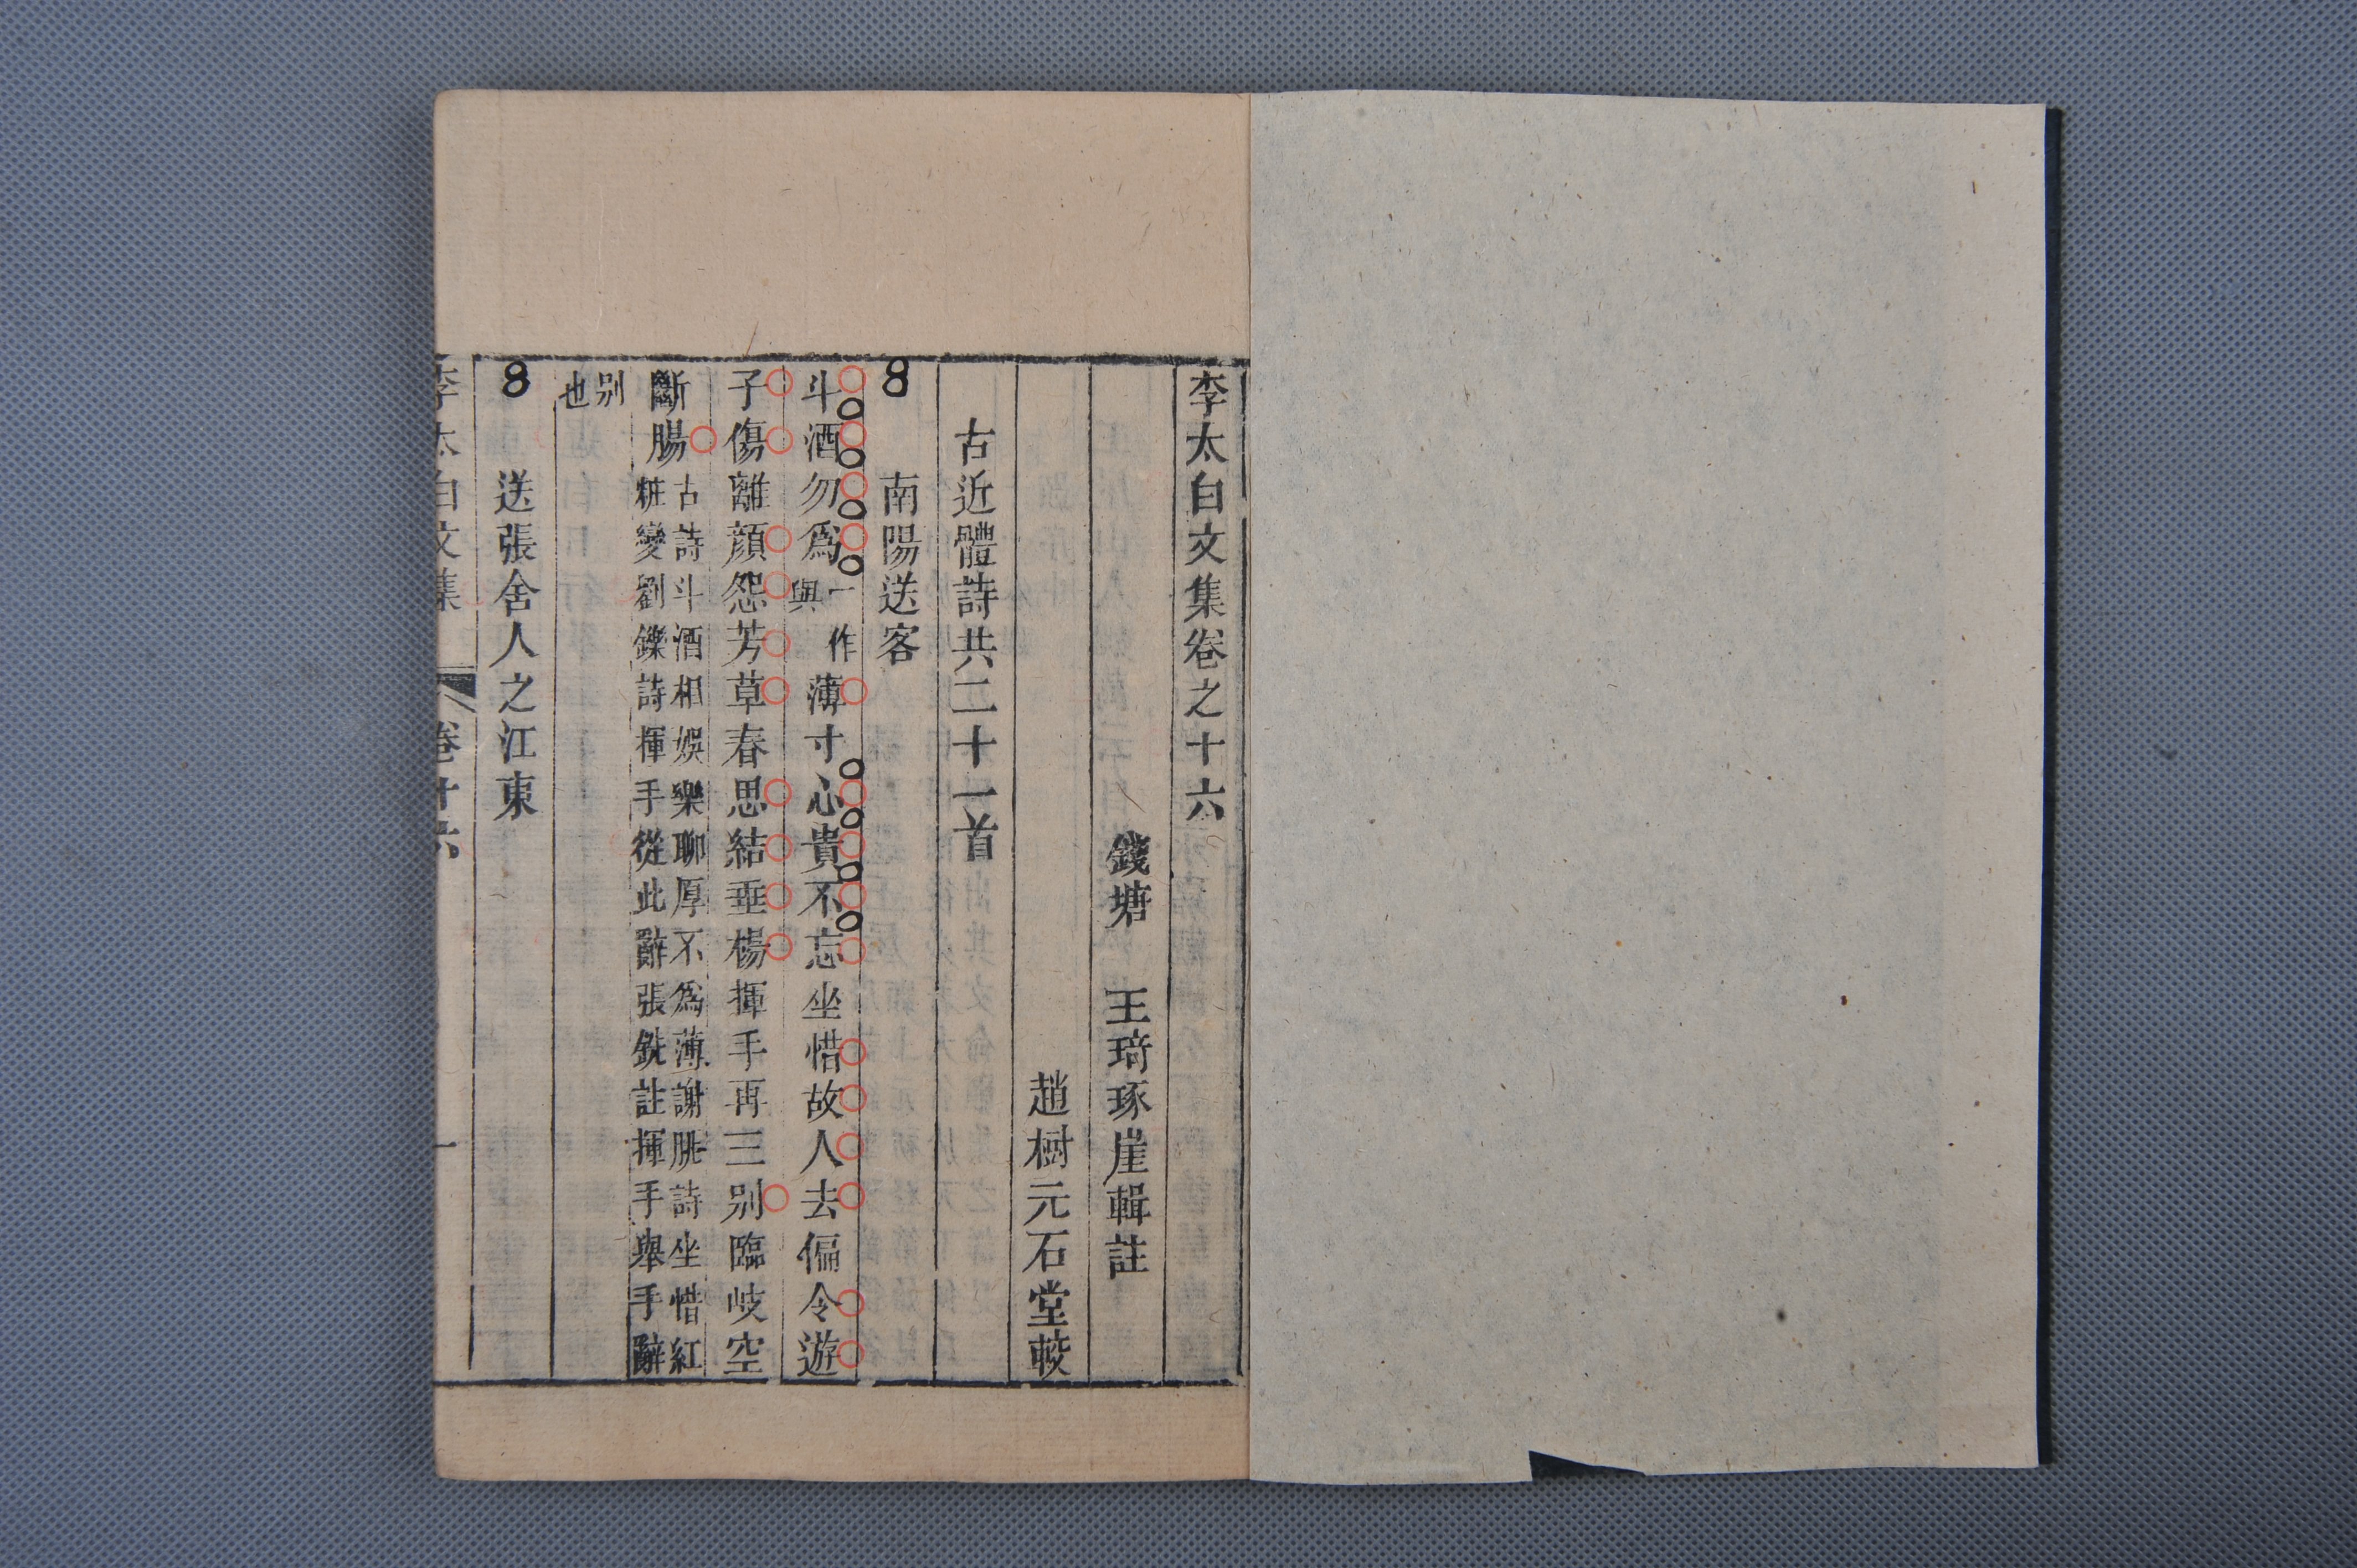 李太白文集卷之十六
錢塘 王琦琢崖輯註
趙樹元石堂較
古近體詩共二十一首
南陽送客
斗酒勿爲一作與薄寸心貴不忘坐惜故人去偏令遊
子傷離顏怨芳草春思結垂楊揮手再三別臨岐空
斷腸
古詩斗酒相娛樂聊厚不爲薄謝朓詩坐惜紅
粧變劉鑠詩揮手從此辭張銑註揮手舉手辭
别
也
送張舍人之江東
李太白文集 卷十六 一